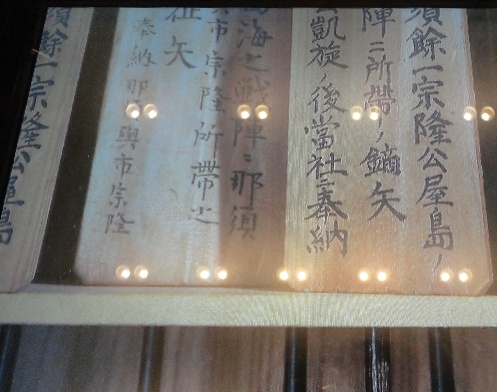 須餘一宗隆公屋島ノ
陣ニ所帶ノ鏑矢
凱旋ノ後當社ニ奉納
海上戦陣ニ那須
市宗隆所帶之
征矢
奉納那須與市宗隆
須餘一宗隆公屋島